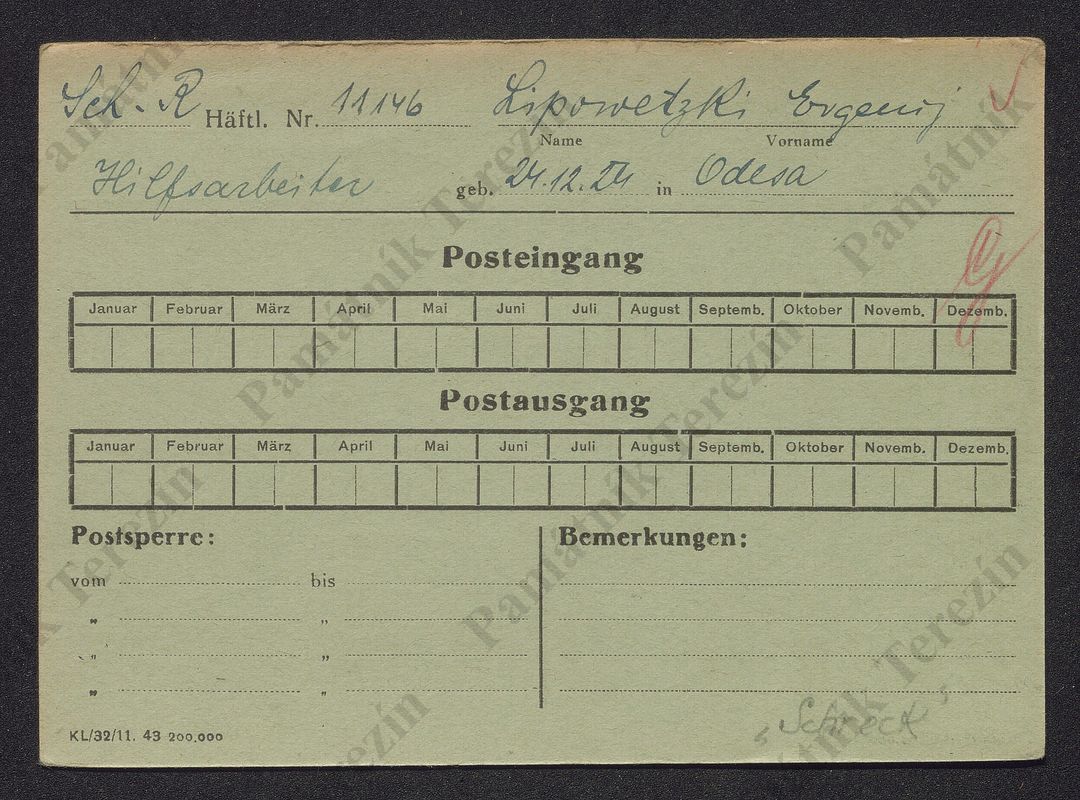 Sch. R Häftl. Nr. 11146 Lipowetzki Evgenij
Name Vorname
Hilfsarbeiter geb. 24.12.24 in Odesa
Posteingang
Januar Februar März April Mai Juni Juli August Septemb. Oktober Novemb. Dezemb.
Postausgang
Januar Februar März April Mai Juni Juli August Septemb. Oktober Novemb. Dezemb.
Postsperre: Bemerkungen:
vom bis
" "
" "
" "
"Schreck"
KL/32/11. 43 200.000
Památník Terezín
Památník Terezín
Památník Terezín
Památník Terezín